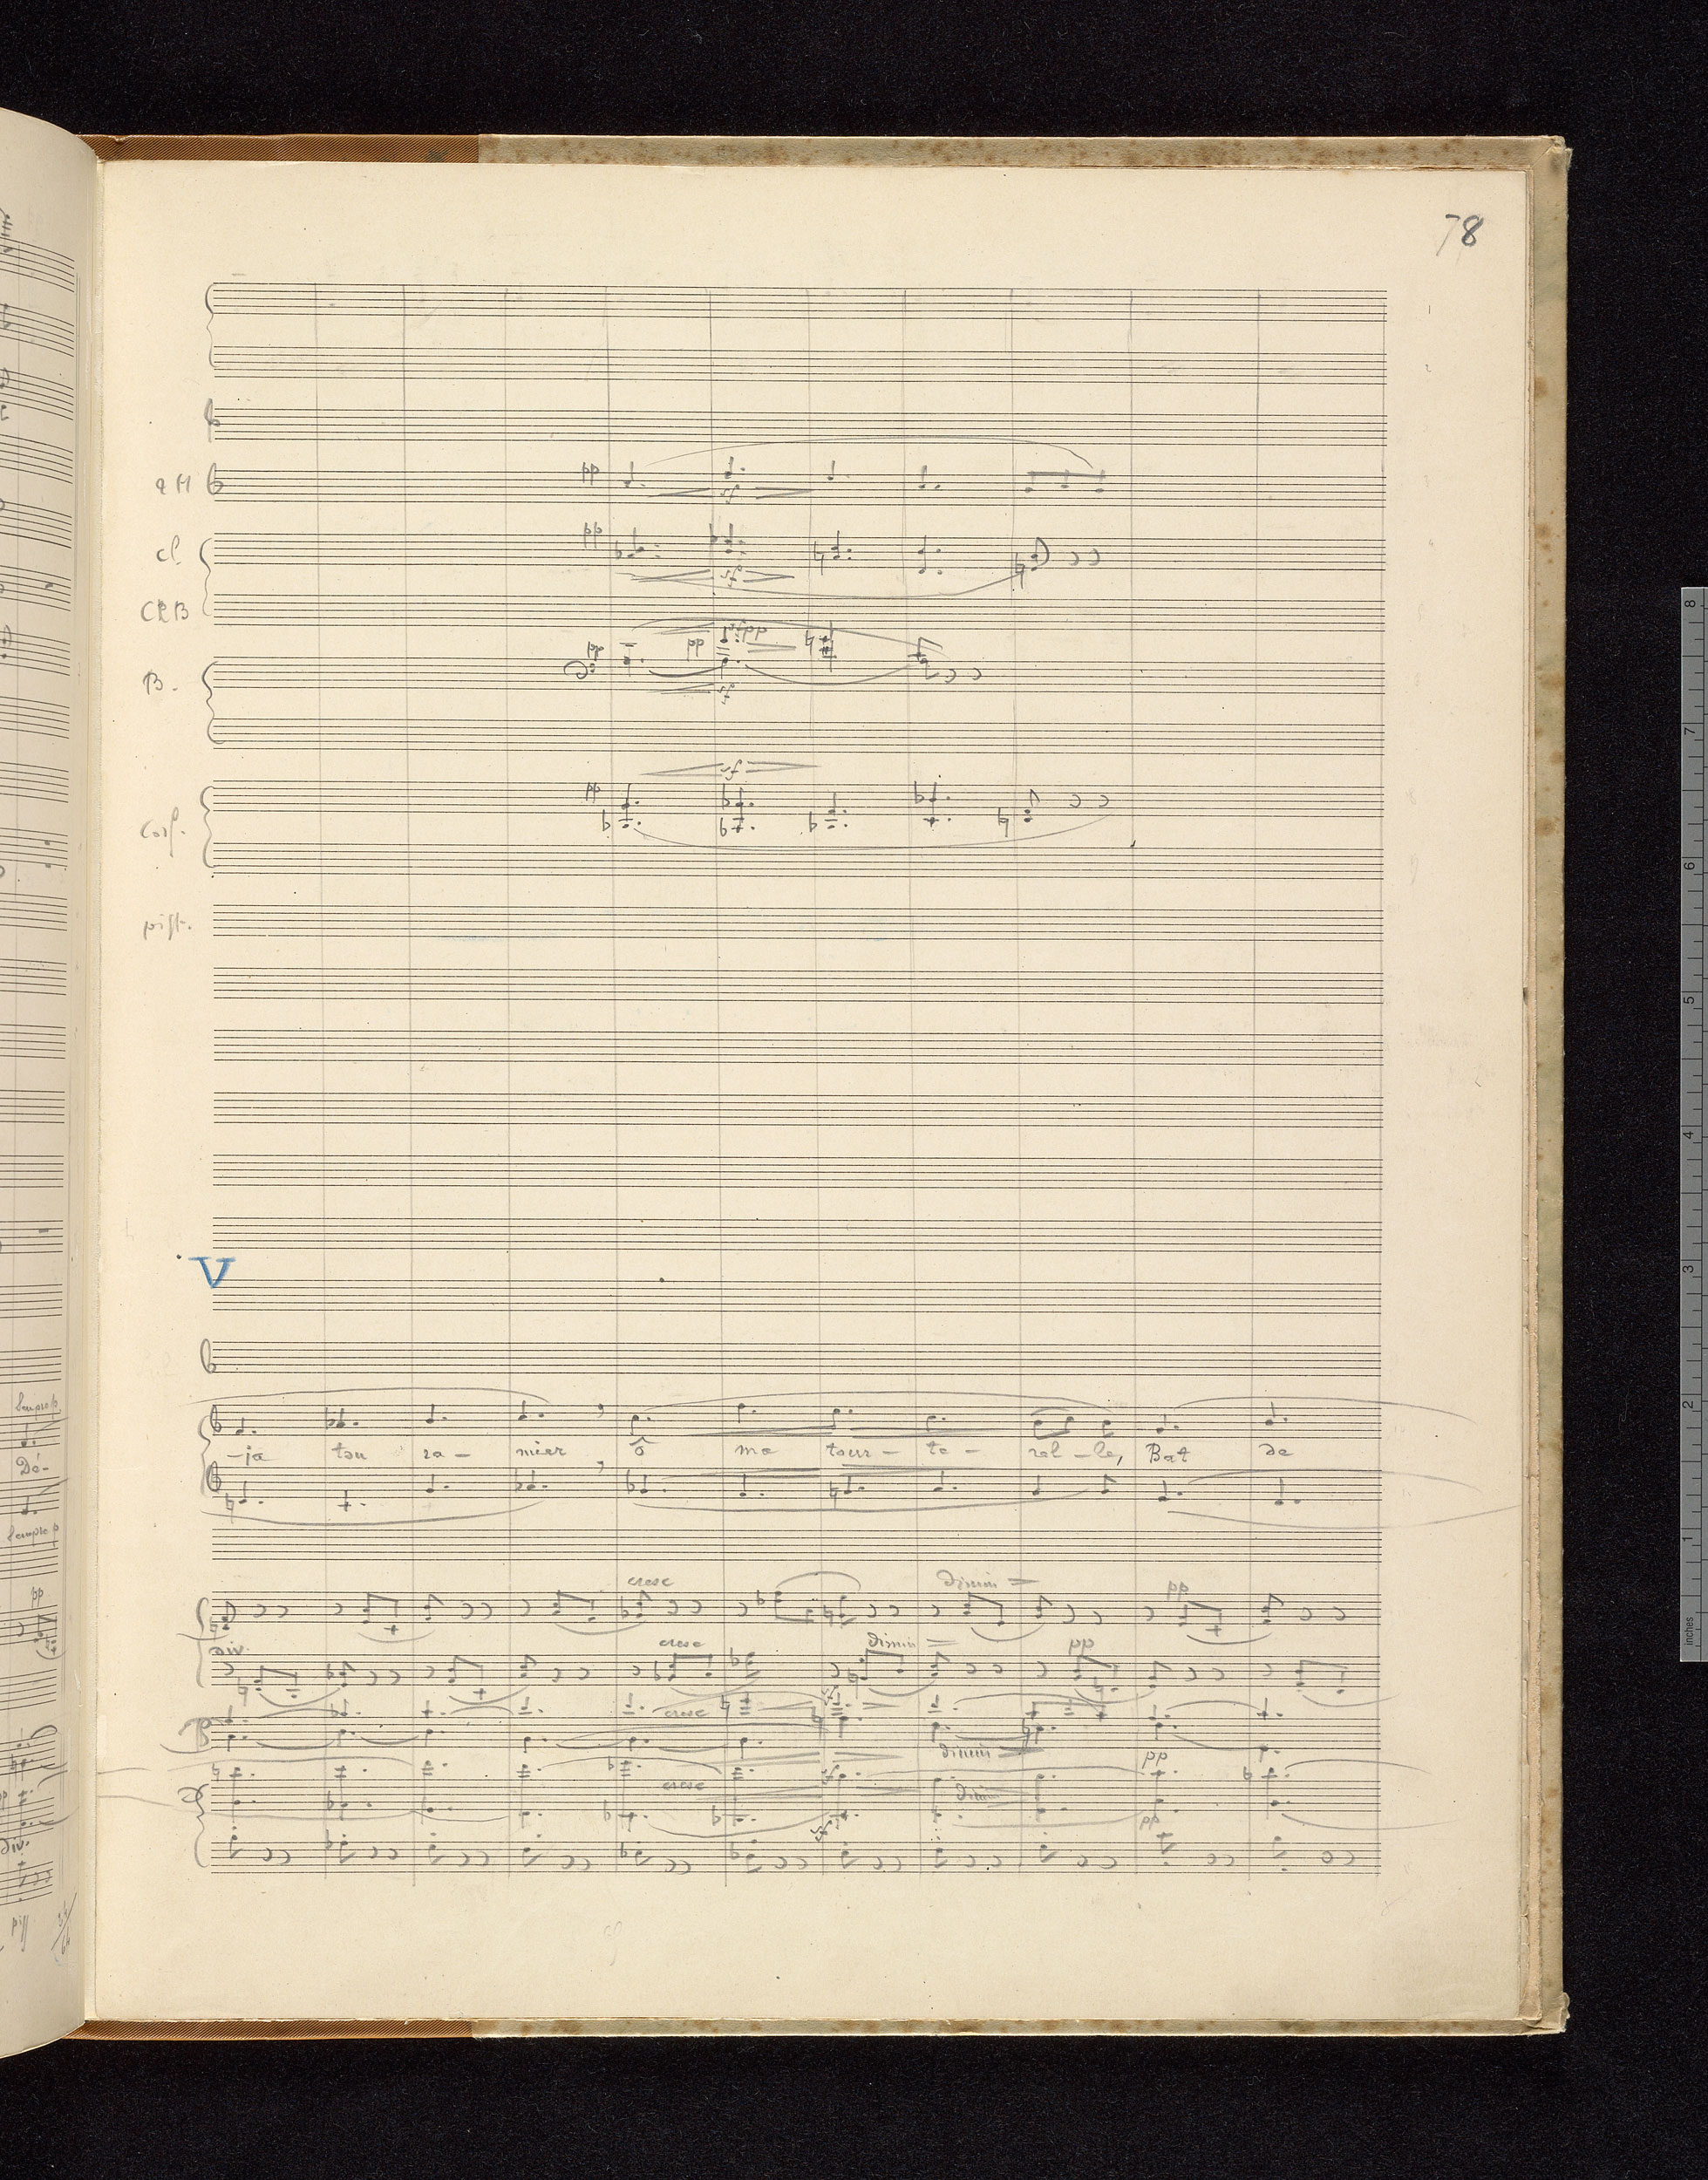 78
pp
sfz
pp
Cl
sfz
B.
pp
pp
pp
sfz
sfz
pp
Cors.
pist.
V
-ja ton ra- mier ô ma tour- te- rel -le, Bat de
Dó-
cresc dimin pp
pp
div. cresc dimin pp
cresc
dimin pp
cresc sfz dimin
sfz pp
div.
8
7
6
5
4
3
2
1
inches